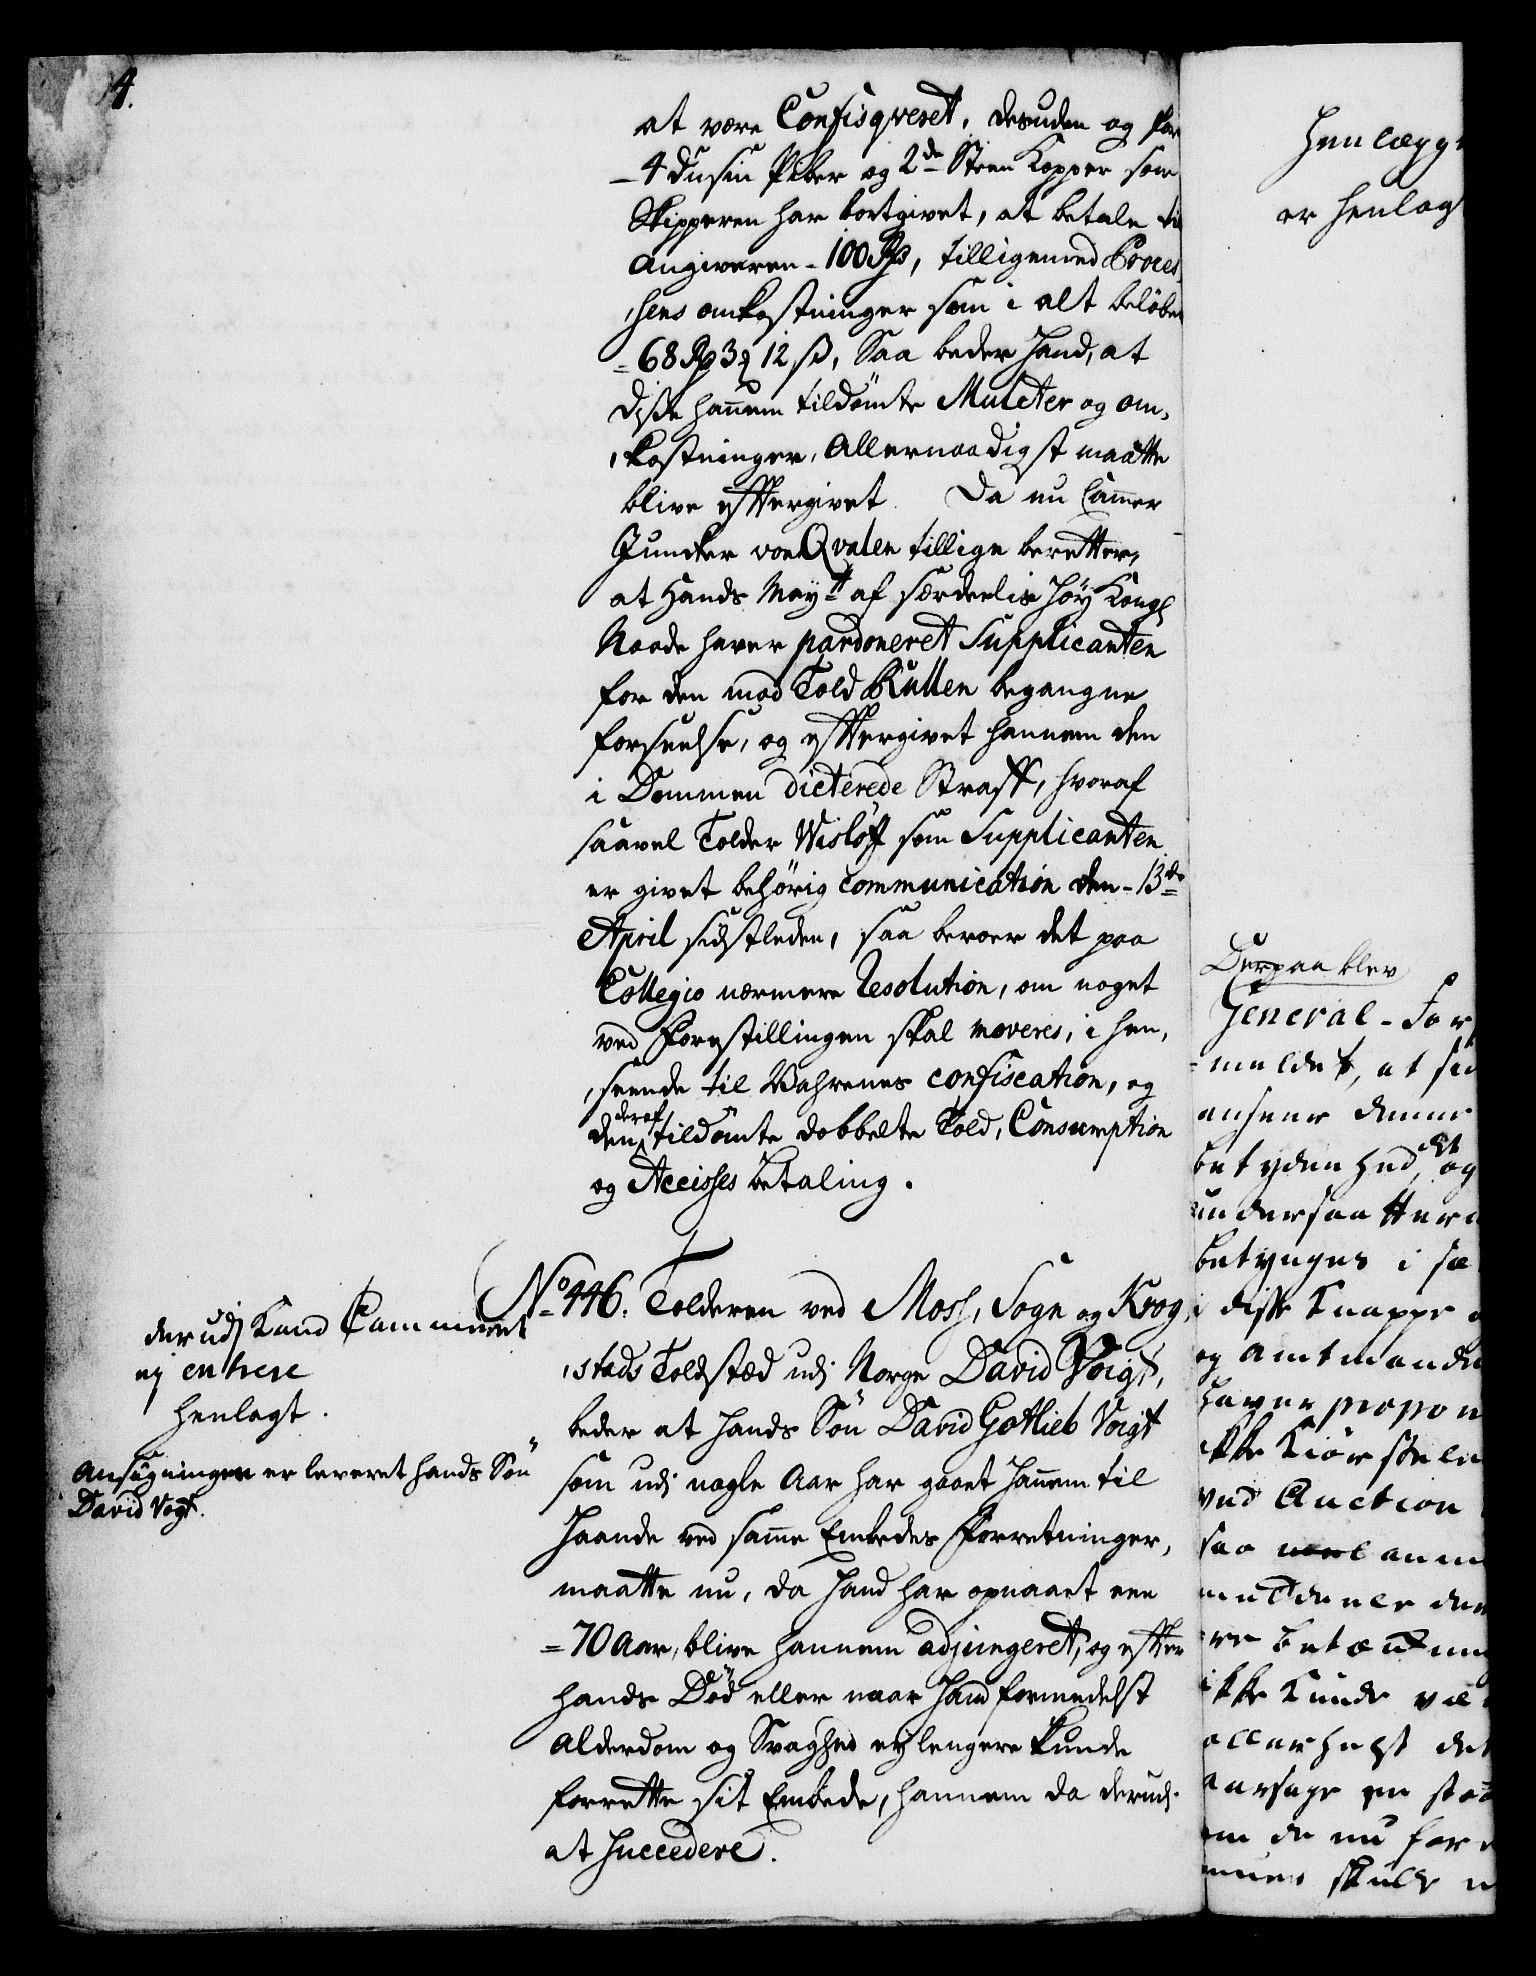 4.
at være Confisqveret, desuden og for
4 Dusin Piber og 2de Steen Kopper som
Skipperen har bortgivet, at betale til
Angiveren 100 Rdr, tilligemed Proces,
,sens omkostninger som i alt beløber
68 Rdr 3 ₰ 12 ss, Saa beder hand, at
disse hannem tildømte Mulcter og om,
,kostninger, Allernaadigst maatte
blive eftergivet. Da nu Cammer
Juncker von Qvalen tillige beretter,
at Hands Maytt af særdeelis høy Kongl
Naade haver pardoneret Supplicanten
for den mod Told Rullen begangne
forseelse, og eftergivet hannem den
i Dommen dicterede Straff, hvoraf
saavel Tolder Wisløff som Supplicanten
er givet behørig communication den 13de
April sidstleden, saa beroer det paa
Collegio nærmere Resolution, om noget
ved Forestillingen skal moveres, i hen,
,seende til Wahrenes confiscation, og
den deraf tildømte dobbelte Told, Consumption
og Accisses betaling.
No 446. Tolderen ved Moss, Sogn og Krog,
,stads Toldstæd udi Norge David Voigt,
beder at hands Søn David Gotlieb Voigt
som udi nogle Aar har gaaet hannem til
haande ved samme Embedes Forretninger,
maatte nu, da hand har opnaaet een
70 Aar, blive hannem adjungeret, og efter
hands Død eller naar hand formedelst
Alderdom og Svaghed ey lengere kunde
forrette sit Embede, hannem da derudi
at succedere.
derudj kand Cammeret
ej entrere
henlagt.
Ansøgningen er leveret hands Søn
David Vogt.
henlægg
er henlag
Derpaa blev
General-For
meldet, at
ansener denne
betydenhed, og
undersaatter
betynges i
disse Knappe
og Amtmand
haver propon
ikke
ved Auction
saa
ikke kunde
allerhelst det
aarsage en
om de nu for
skulle